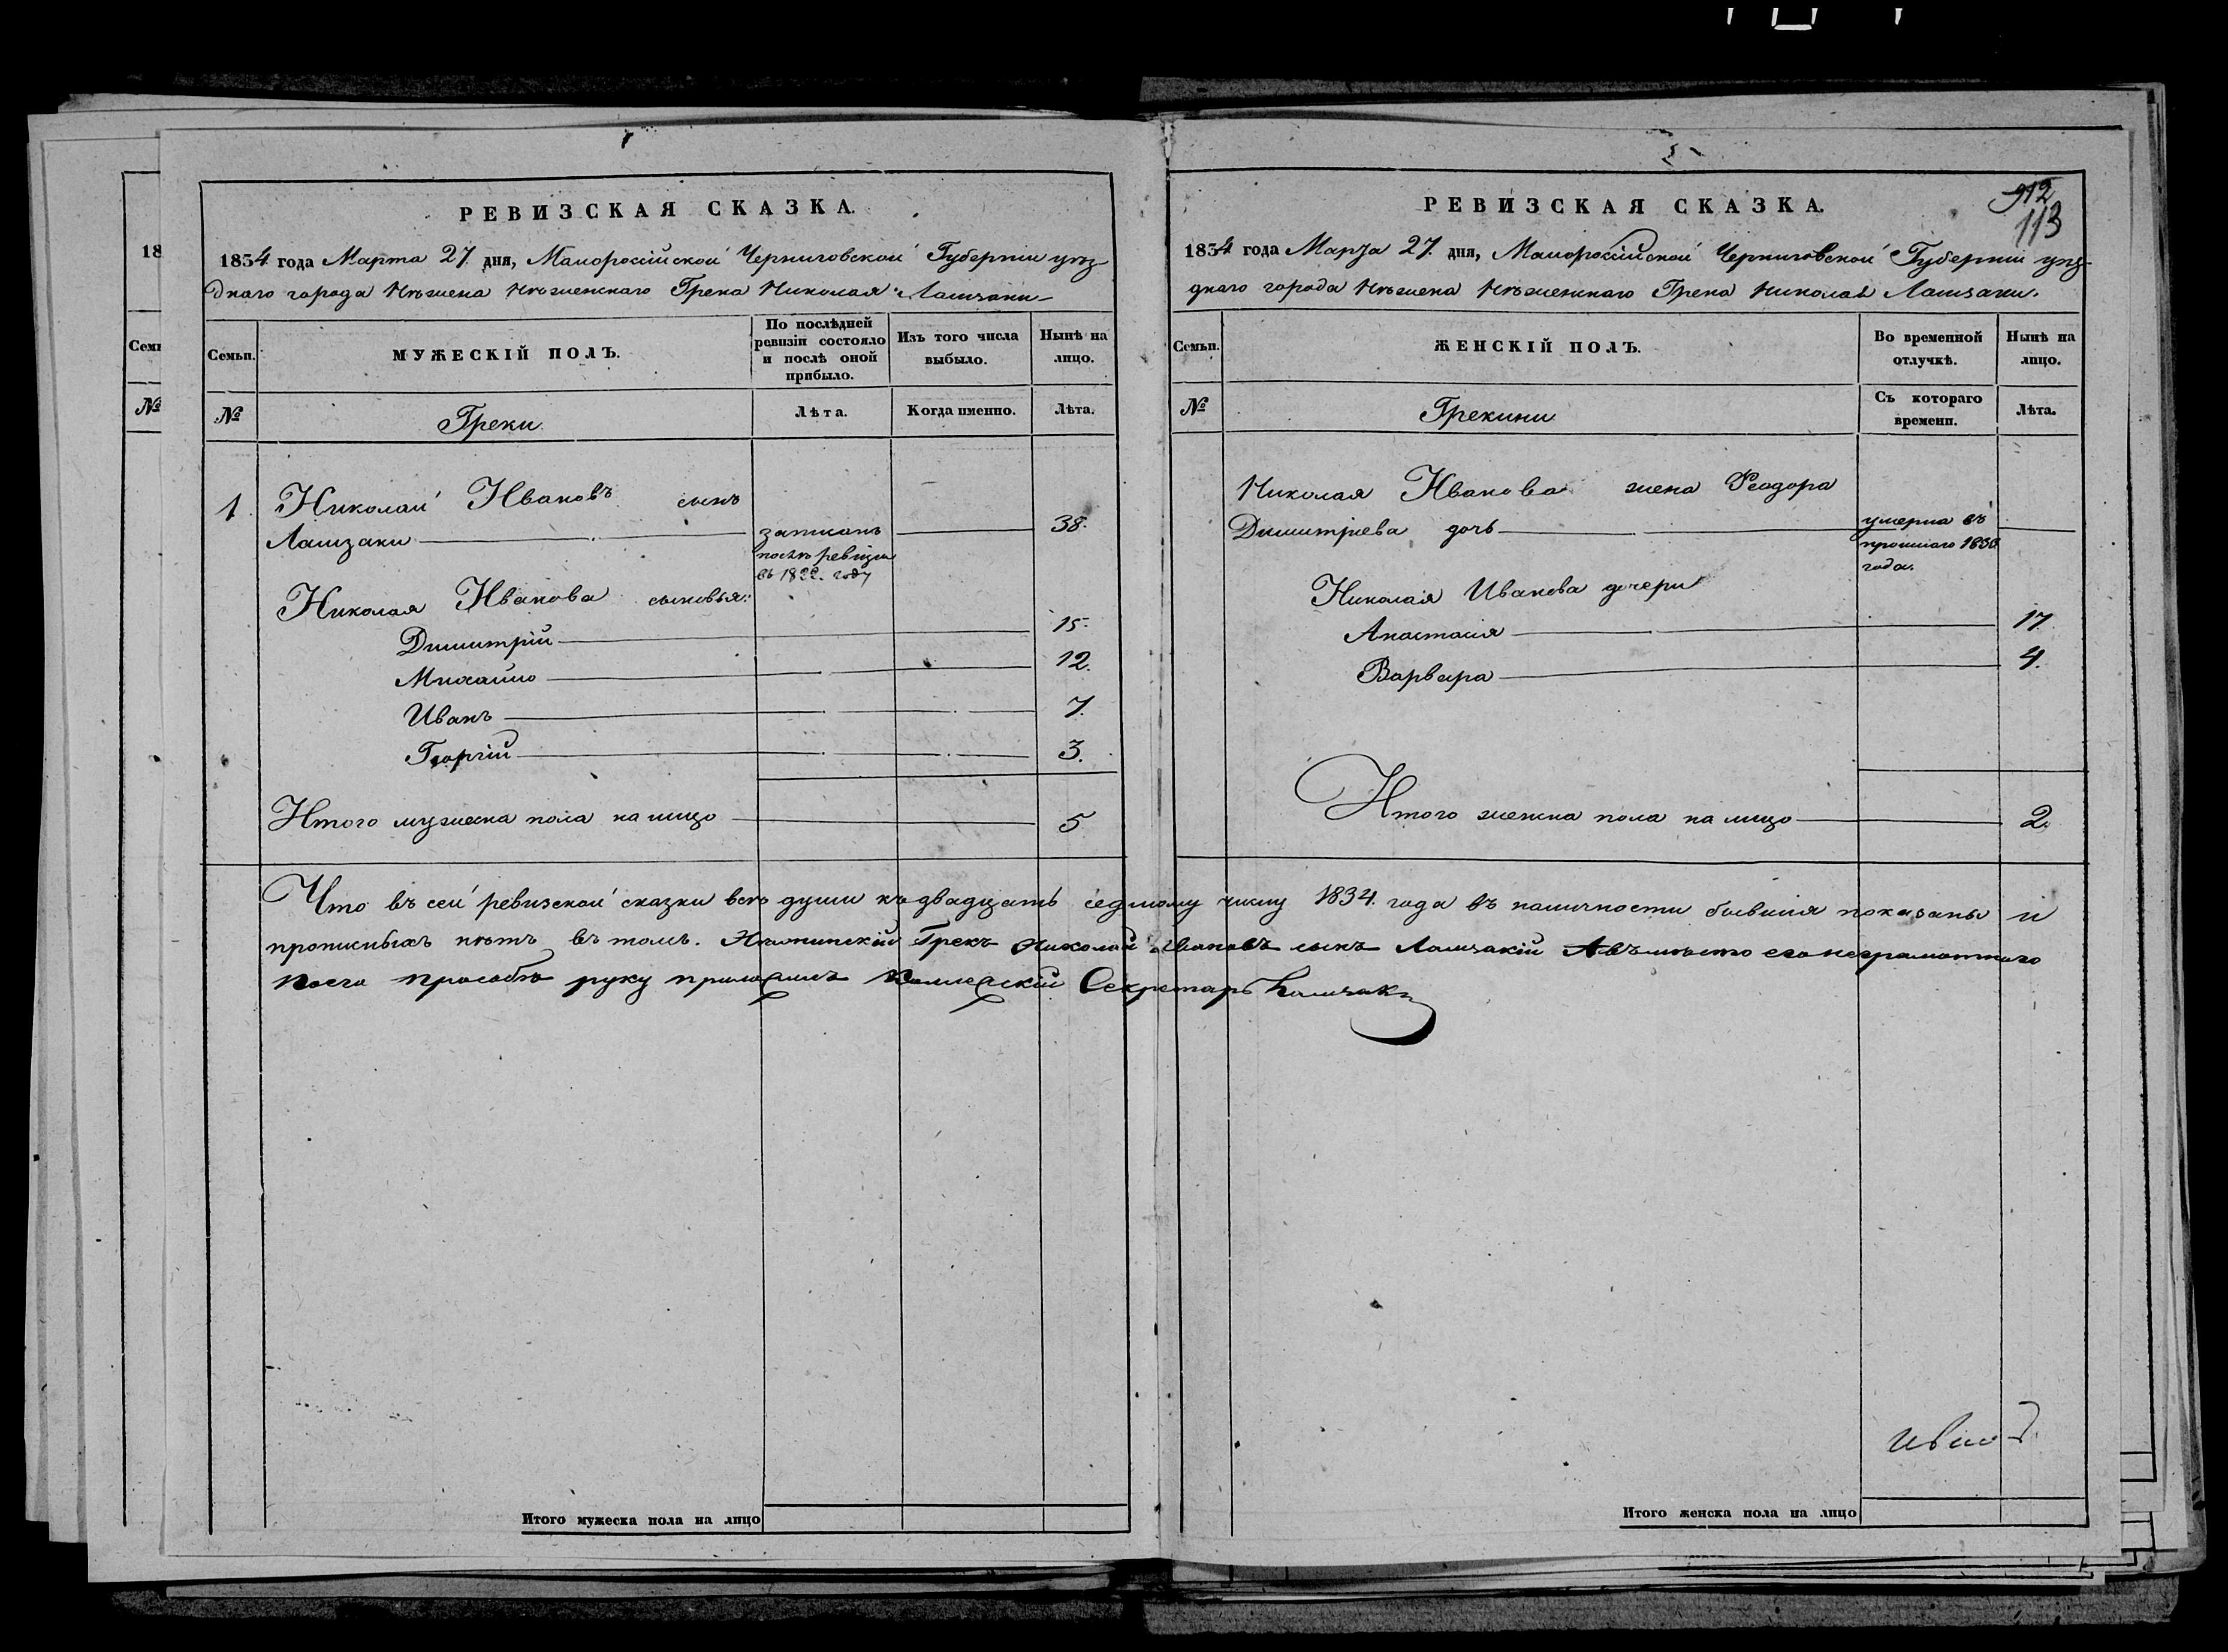 РЕВИЗСКАЯ СКАЗКА.
1834 года Марта 27. дня, Малоросійской Черниговской Губерніи уѣз-
днаго города Нѣжина Нѣжинскаго Грека Николая
Семьи.
МУЖЕСКІЙ ПОЛЪ.
По послѣдней ревизіи состояло и послѣ оной прибыло.
Изъ того числа выбыло.
Нынѣ на лицо.
№
Греки.
Лѣта.
Когда именно.
Лѣта.
1. Николай Ивановъ сынъ
Ламзаки записанъ 38.
послѣ ревизіи
въ 1822. году
Николая Иванова сыновья:
Димитрій 15.
Михайло 12.
Иванъ 7.
Георгій 3.
Итого мужеска пола на лицо 5
Итого мужеска пола на лицо
912
113
РЕВИЗСКАЯ СКАЗКА.
1834 года Марта 27. дня, Малоросійской Черниговской Губерніи уѣз-
днаго города Нѣжина Нѣжинскаго Грека Николая Ламзаки.
Семьи.
ЖЕНСКІЙ ПОЛЪ.
Во временной отлучкѣ.
Нынѣ на лицо.
№
Грекини
Съ котораго времени.
Лѣта.
Николая Иванова жена Феодора
Димитріева дочь умерла въ
прошлаго
года.
Николая Иванова дочери
Анастасія 17.
Варвара 4.
Итого женска пола на лицо 2.
Что въ сей ревизской сказки всѣ души къ двадцать седмому числу 1834. года въ наличности бывшія показаны и
прописныхъ нѣтъ въ томъ. Нѣжинскій Грекъ Николай Ивановъ сынъ Ламзакій А вмѣсто его неграмотного
по его прозбѣ руку приложилъ Секретарь
Итого женска пола на лицо
18
Семь
№